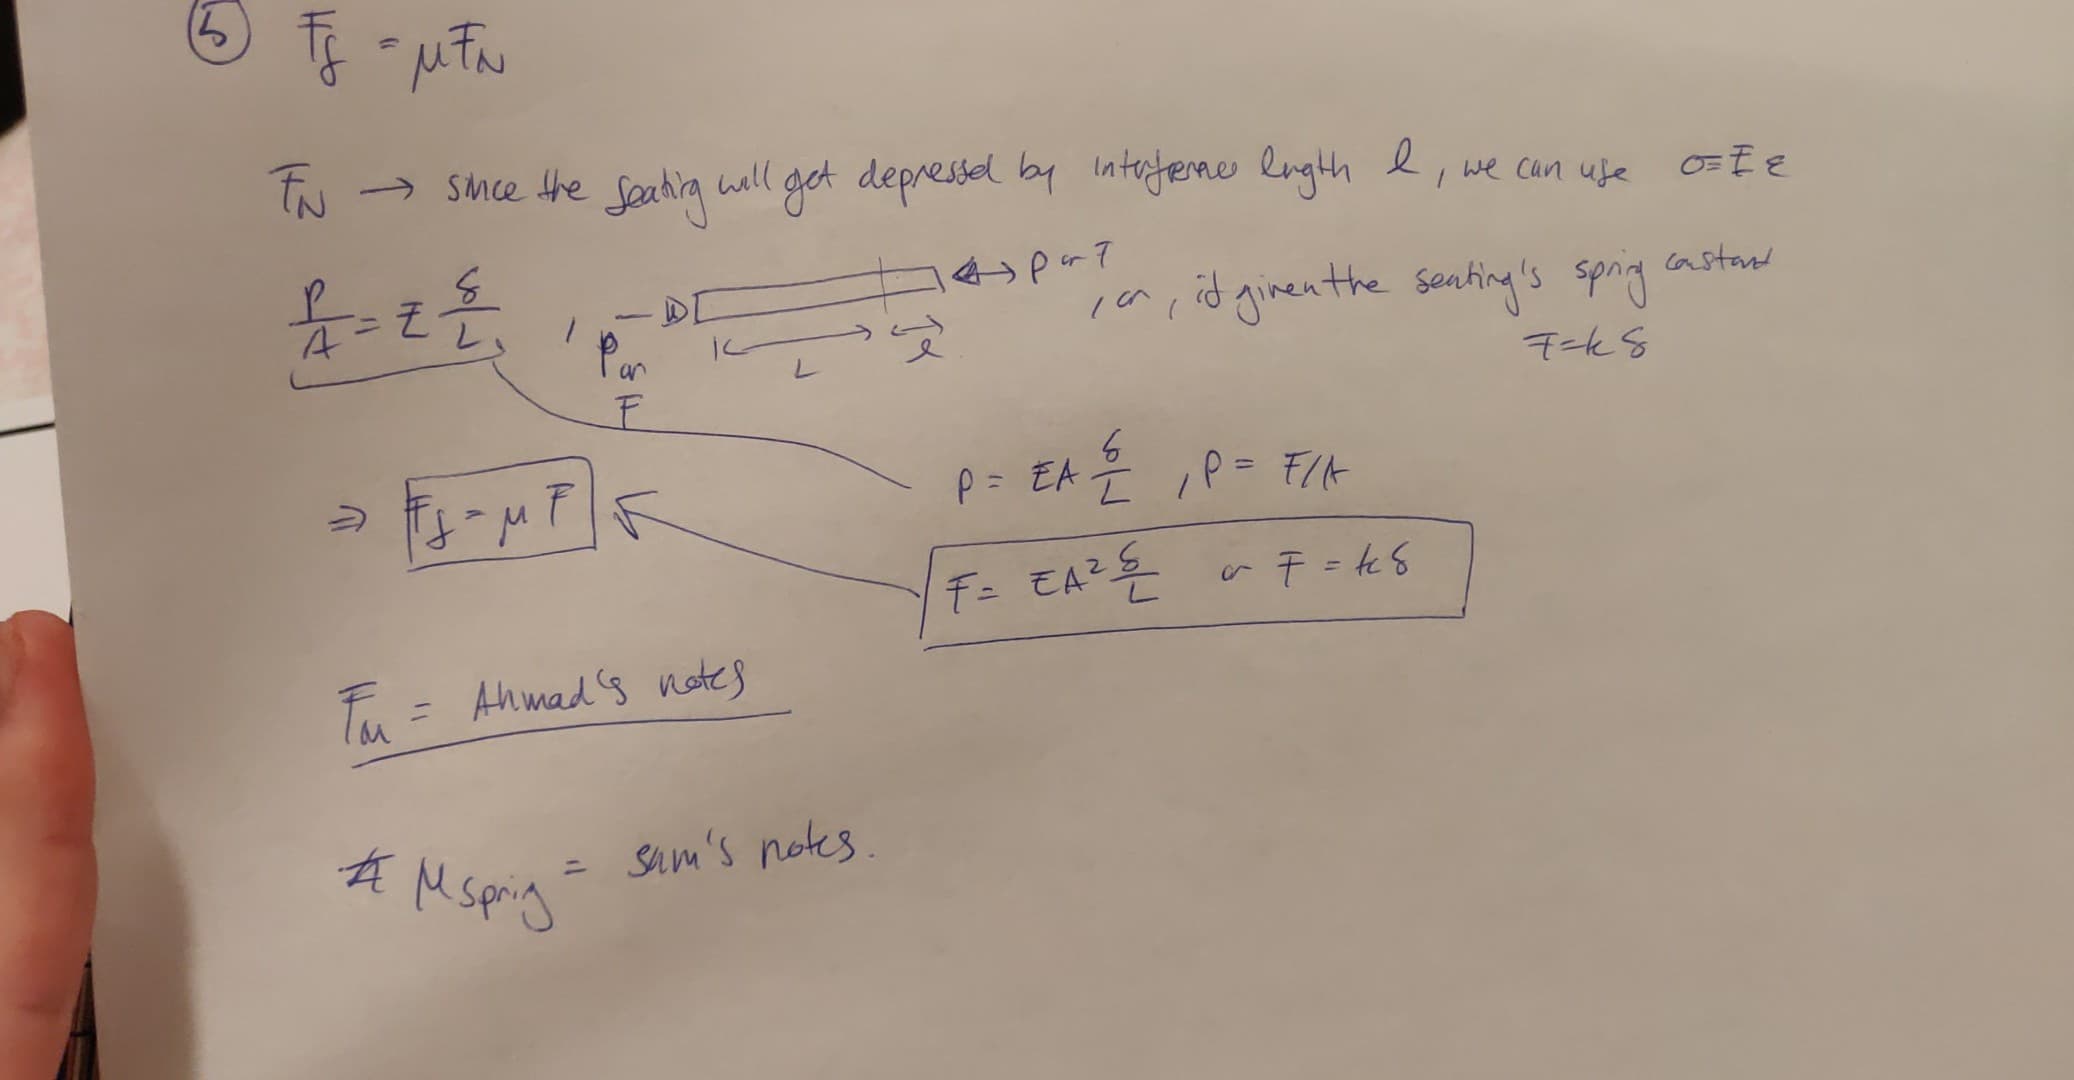 5 F_f = μF_N
F_N → since the seating will get depressed by interference length l, we can use σ=Eε
P/A = E δ/L , P or F L l P or F , or, if given the seating's spring constant
F=kδ
P = EA δ/L , P = F/A
⇒ F_f = μF
F = EA² δ/L or F = kδ
F_m = Ahmad's notes
μ_spring = sam's notes.